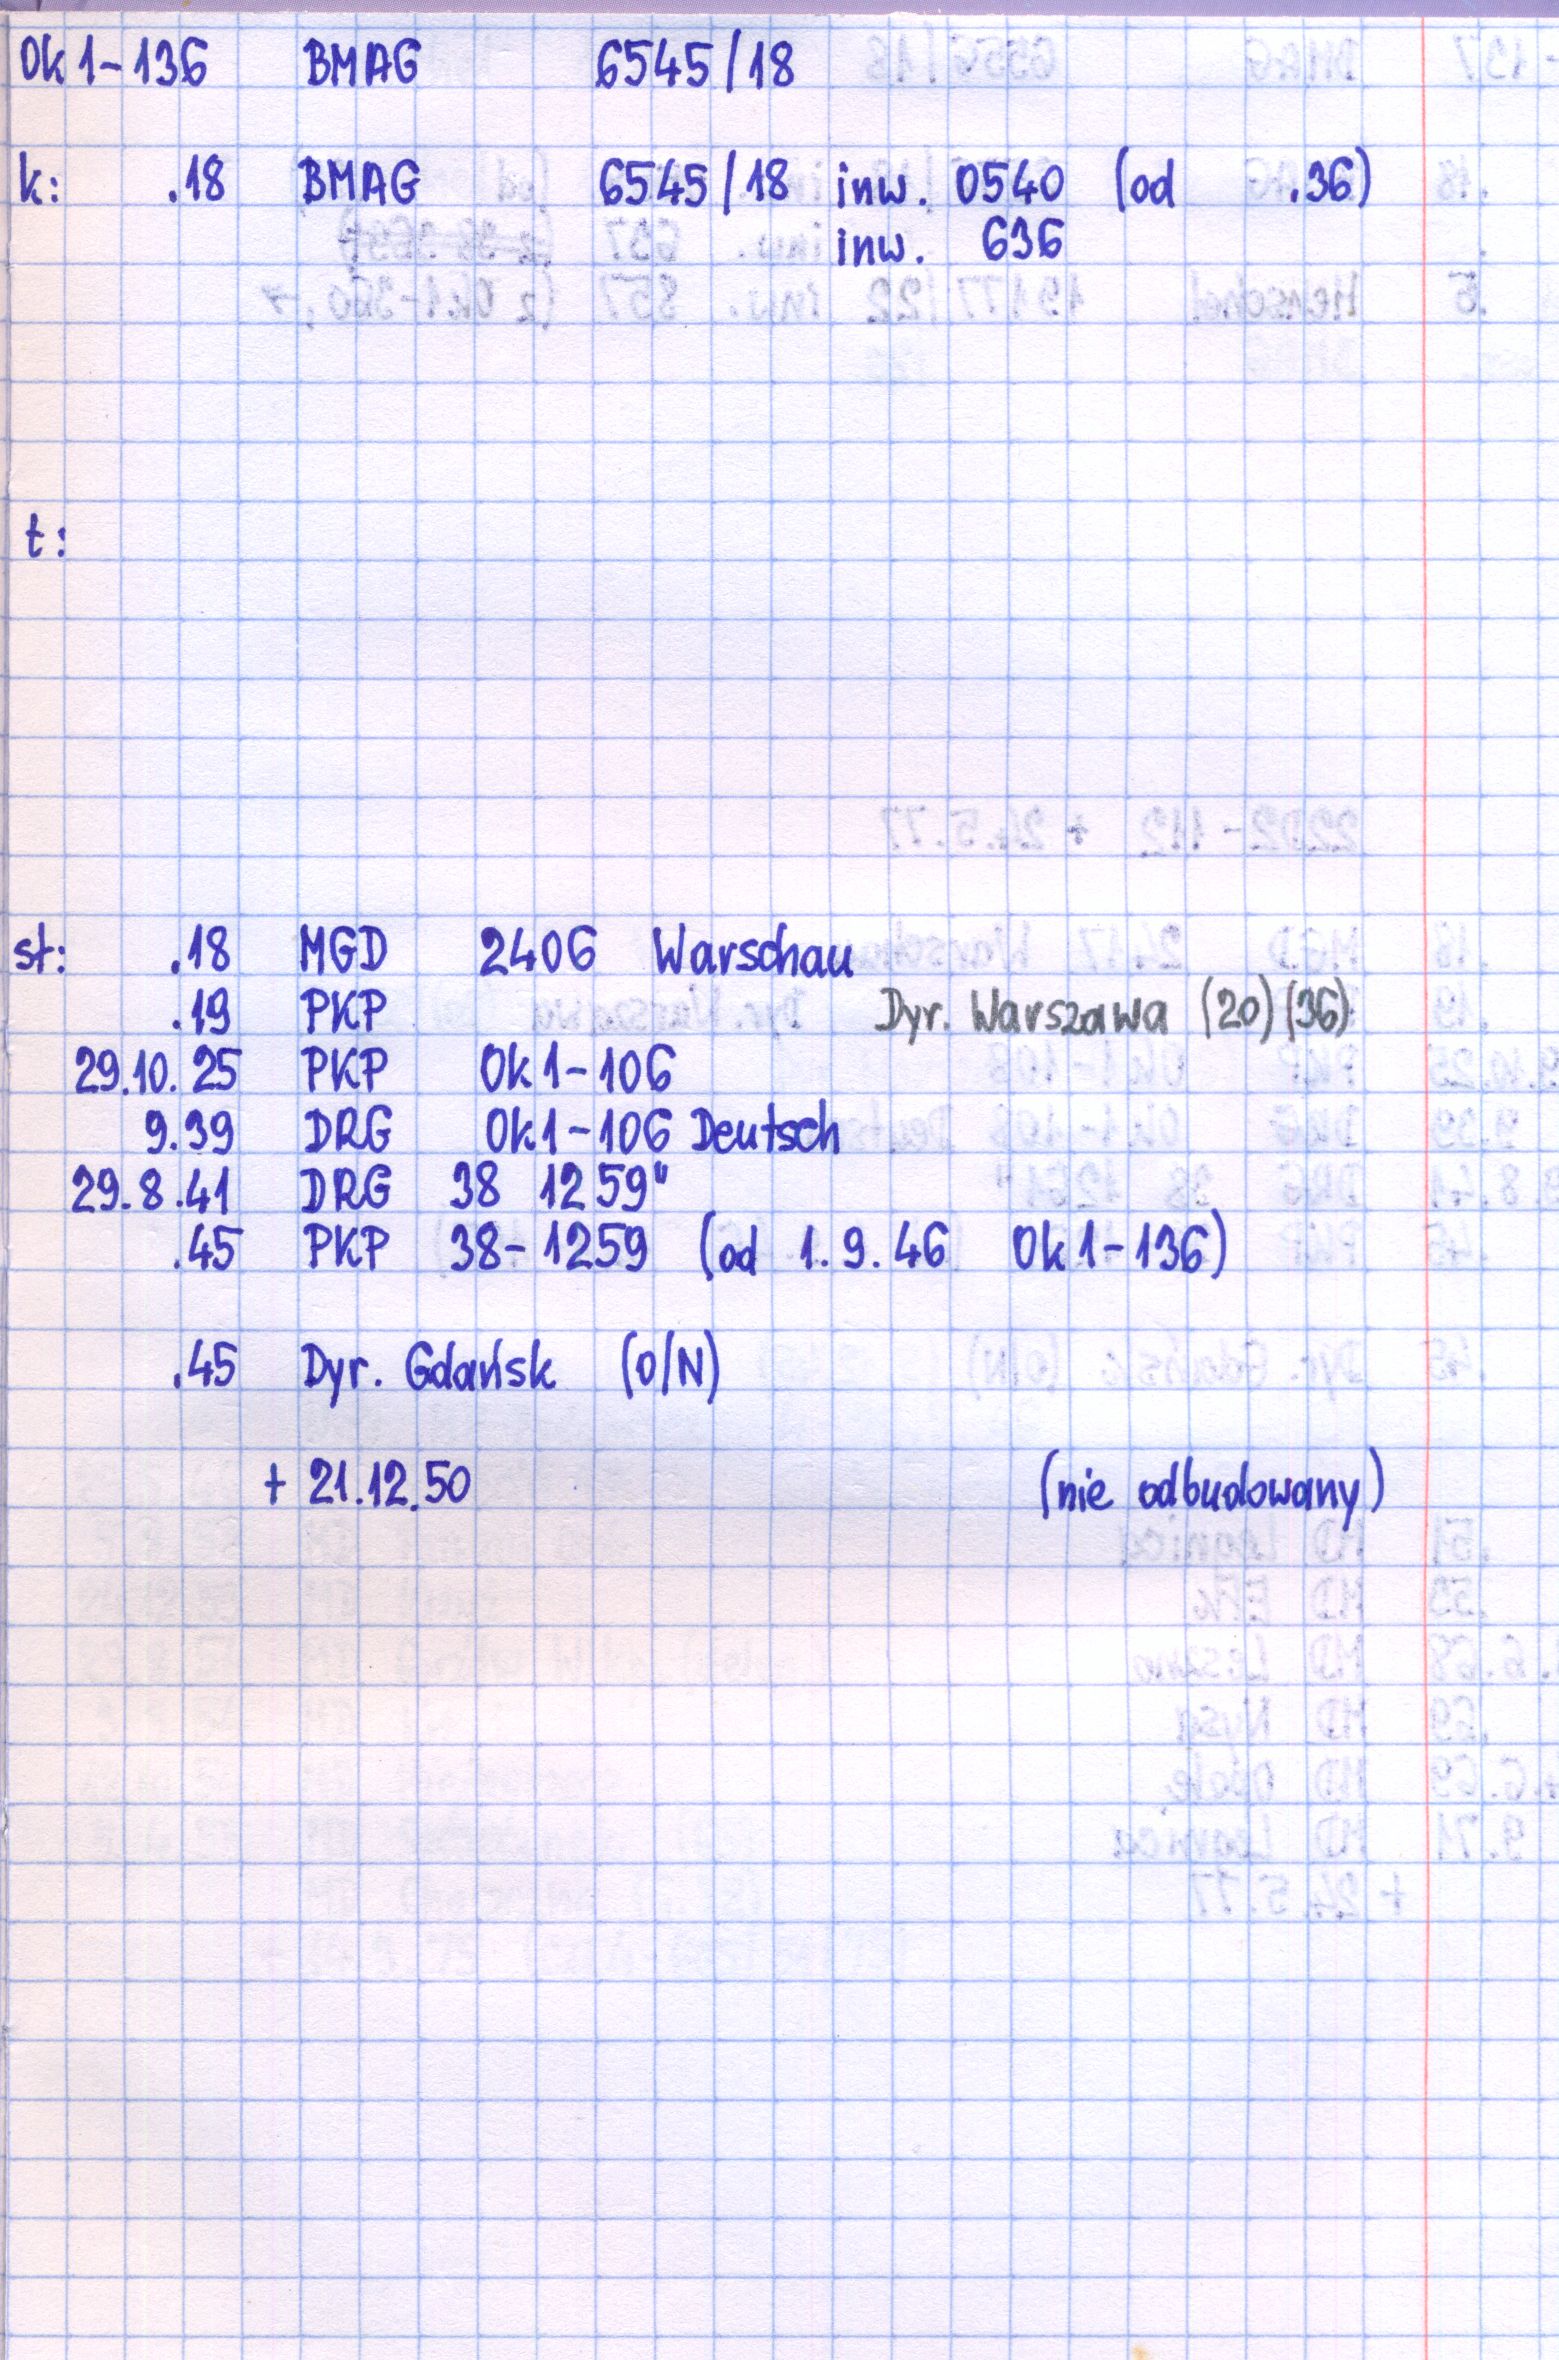 Ok1-136 BMAG 6545/18
k: .18 BMAG 6545/18 inw. 0540 (od .36)
inw. 636
t:
st: .18 MGD 2406 Warschau
.19 PKP Dyr. Warszawa (20)(36)
29.10.25 PKP Ok1-106
9.39 DRG Ok1-106 Deutsch
29.8.41 DRG 38 1259"
.45 PKP 38-1259 (od 1.9.46 Ok1-136)
.45 Dyr. Gdańsk (O/N)
+ 21.12.50 (nie odbudowany)